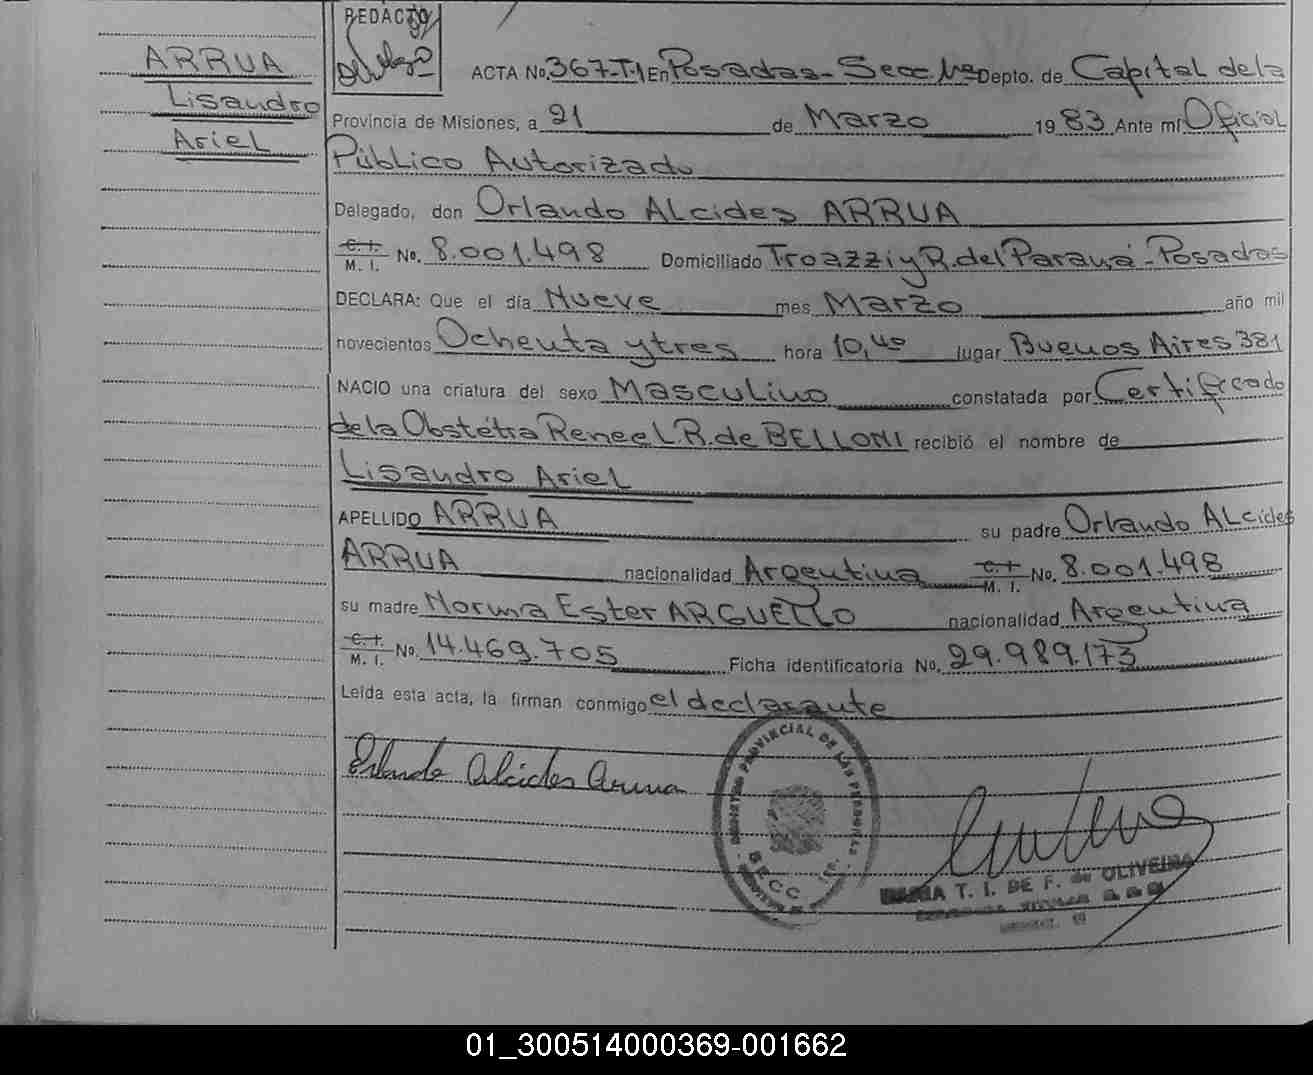 ARRUA
Lisandro
Ariel
REDACTO
ACTA No. 367-T-1 En Posadas- Secc. 1ra Depto. de Capital de la
Provincia de Misiones, a 21 de Marzo 1983 Ante mí Oficial
Público Autorizado
Delegado, don Orlando ALcides ARRUA
C. I.
M. I. No. 8.001.498 Domiciliado Troazzi y R. del Paraná - Posadas
DECLARA: Que el día Nueve mes Marzo año mil
novecientos Ochenta y tres hora 10,40 lugar Buenos Aires 381
NACIO una criatura del sexo Masculino constatada por Certificado
de la Obstétra Renee L. R. de BELLONI recibió el nombre de
Lisandro Ariel
APELLIDO ARRUA su padre Orlando ALcides
ARRUA nacionalidad Argentina C. I. M. I. No. 8.001.498
su madre Norma Ester ARGUELLO nacionalidad Argentina
C. I.
M. I. No. 14.469.705 Ficha identificatoria No. 29.989.173
Leída esta acta, la firman conmigo el declarante
Orlando Alcides Arrua
PROVINCIAL DE LAS PERSONAS
SECC. 1ra.
MARIA T. I. DE F. de OLIVEIRA
01_300514000369-001662